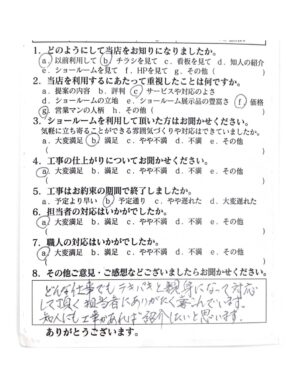 1. どのようにして当店をお知りになりましたか。
a. 以前利用して b. チラシを見て c. 看板を見て d. 知人の紹介
e. ショールームを見て f. HPを見て g. その他 (
)
2. 当店を利用するにあたって重視したことは何ですか。
a. 提案の内容 b. 評判 c. サービスや対応のよさ
d. ショールームの立地 e. ショールーム展示品の豊富さ f. 価格
g. 営業マンの人柄 h. その他 (
)
3. ショールームを利用して頂いた方はお聞かせください。
気軽に立ち寄ることができる雰囲気づくりや対応はできていましたか。
a. 大変満足 b. 満足 c. やや不満 d. 不満 e. その他
( )
4. 工事の仕上がりについてお聞かせください。
a. 大変満足 b. 満足 c. やや不満 d. 不満 e. その他
( )
5. 工事はお約束の期間で終了しましたか。
a. 予定より早い b. 予定通り c. やや遅れた d. 大変遅れた
6. 担当者の対応はいかがでしたか。
a. 大変満足 b. 満足 c. やや不満 d. 不満 e. その他
( )
7. 職人の対応はいかがでしたか。
a. 大変満足 b. 満足 c. やや不満 d. 不満 e. その他
( )
8. その他ご意見・ご感想などございましたらお聞かせください。
どんな仕事でもテキパキと親身になって対応
して頂く担当者にありがたく喜んでいます。
知人にも工事があれば紹介したいと思います。
ありがとうございます。